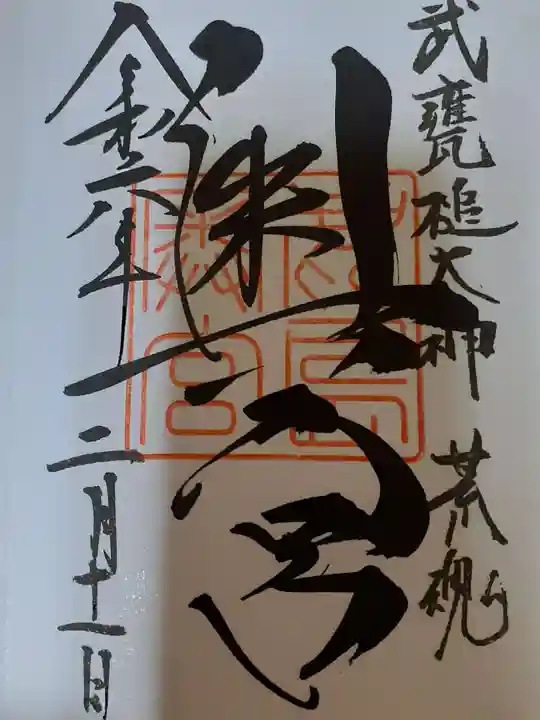 武甕槌大神 荒魂
奥宮
令和六年二月十一日